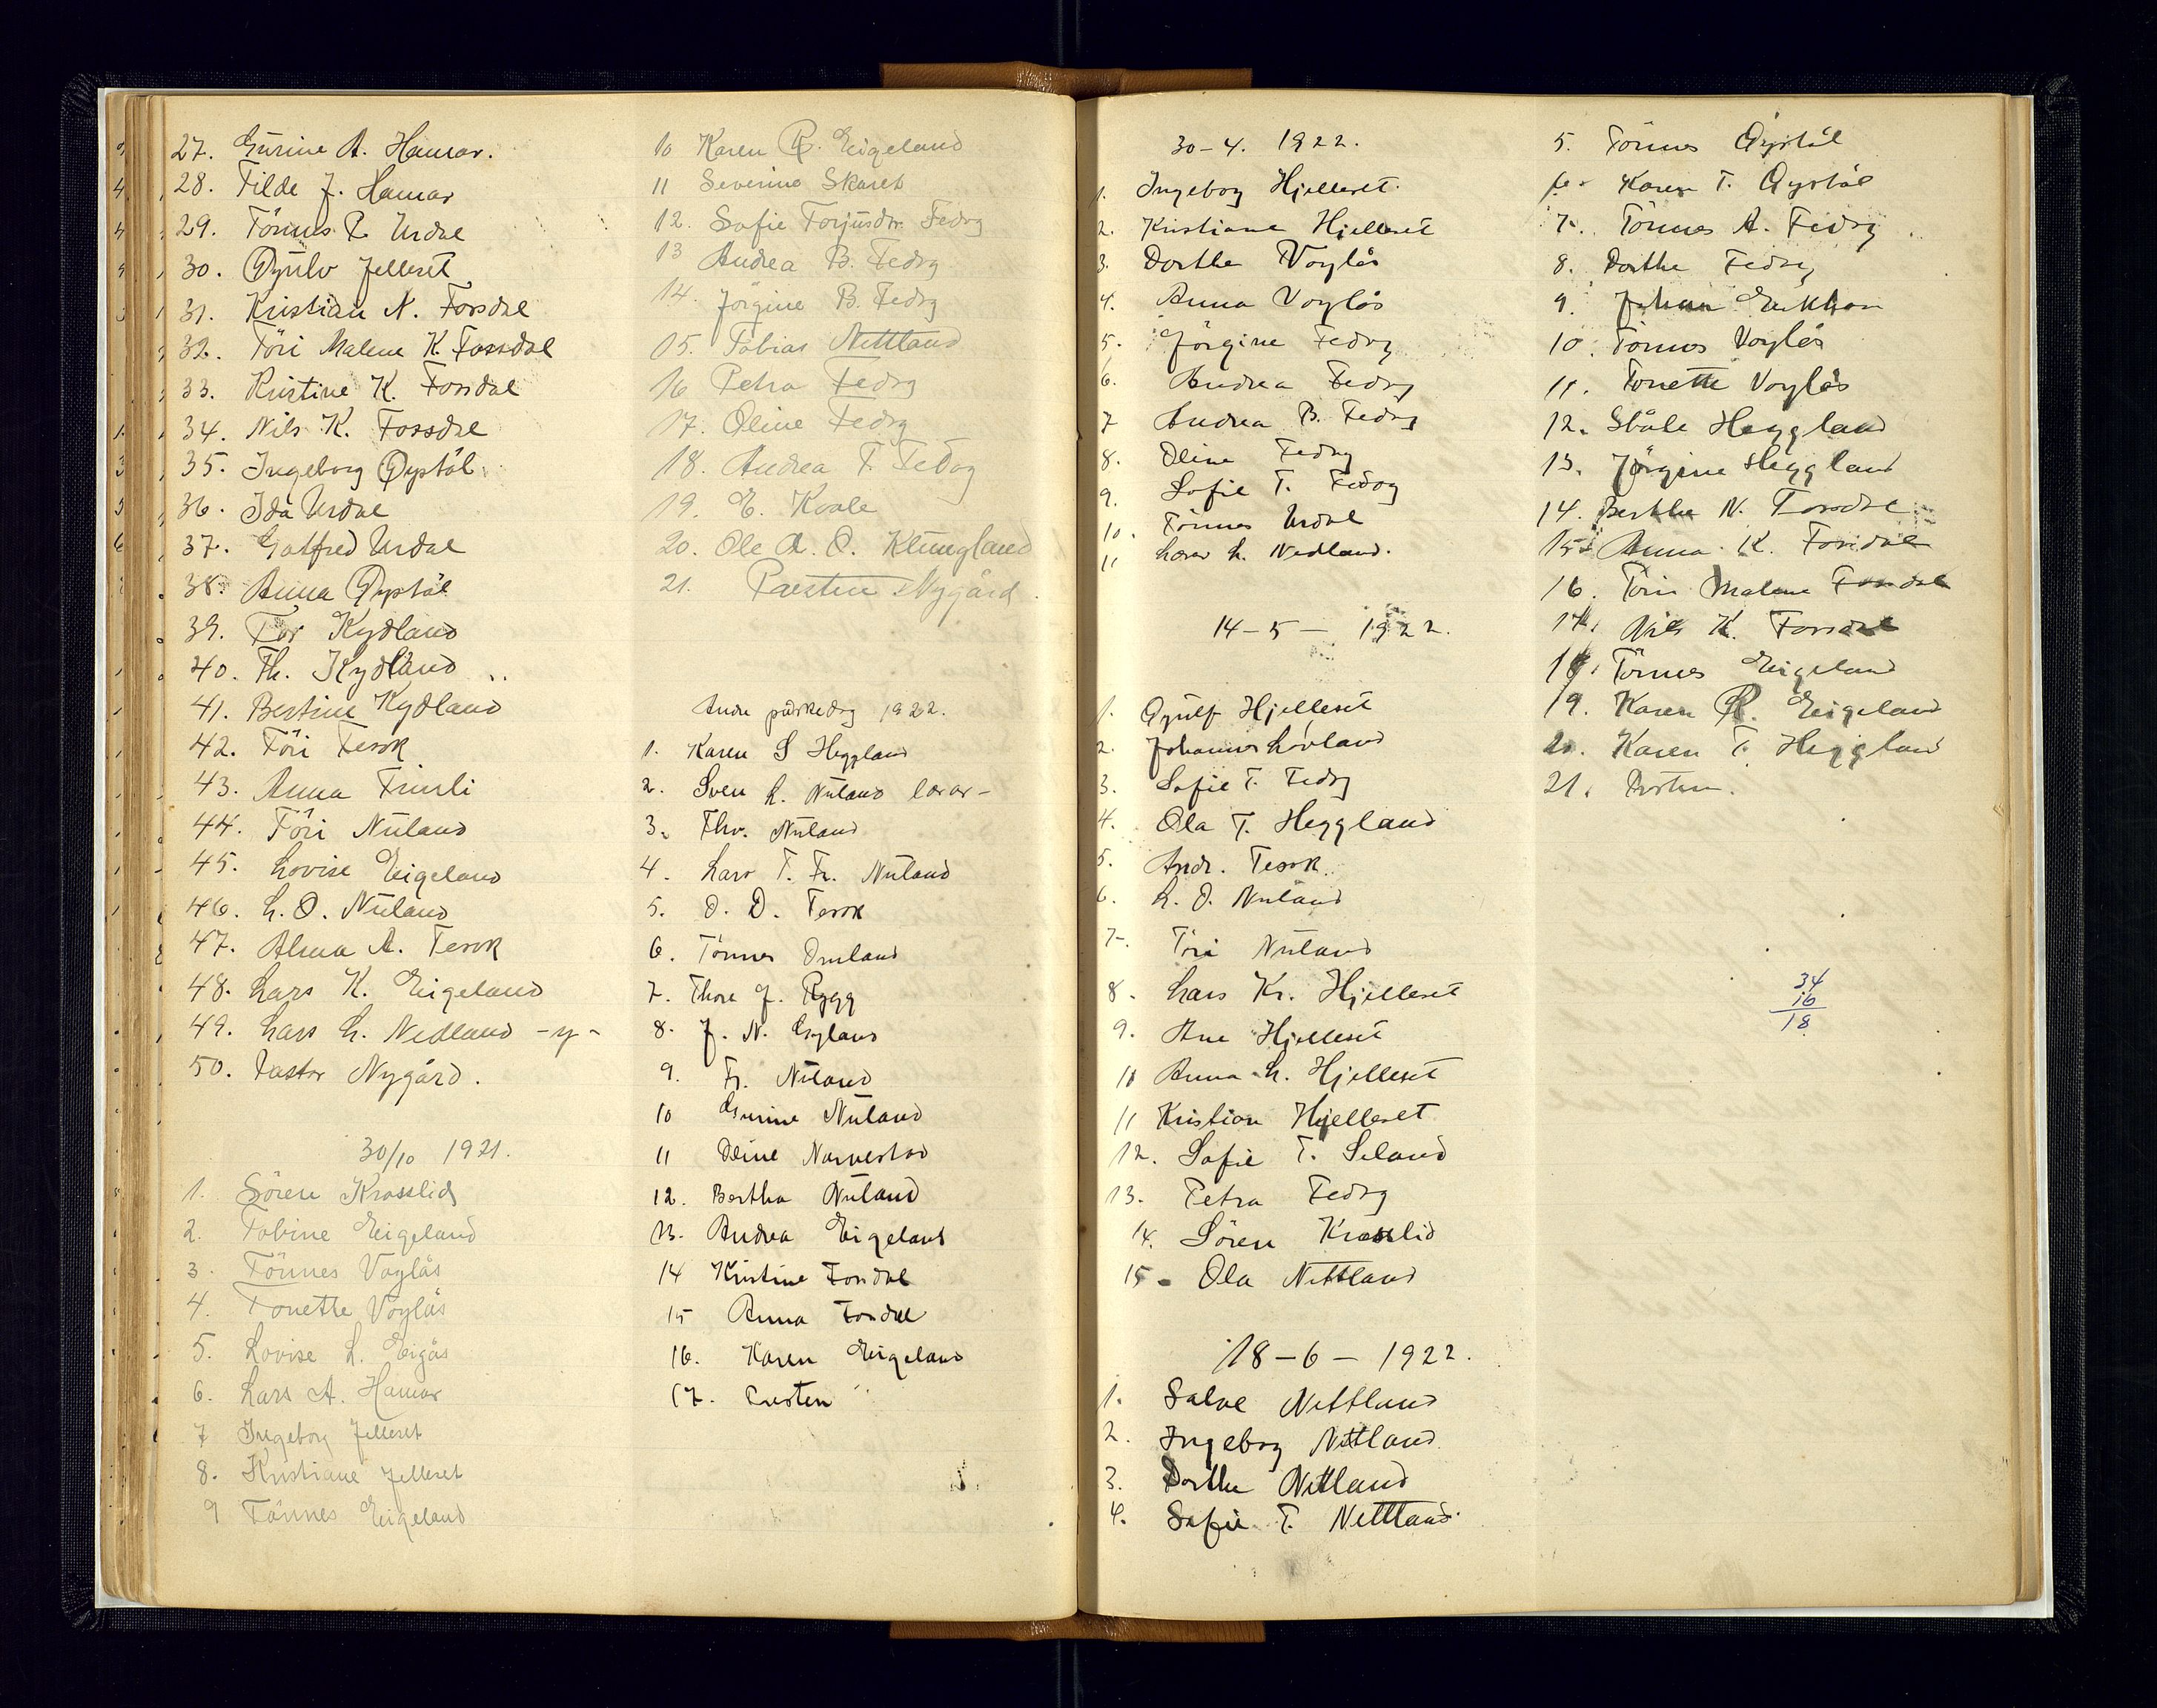 27. Gurine A. Hamar.
28. Tilde J. Hamar
29. Tönnes P. Urdal
30. Øyulv Jelleset
31. Kristian N. Fossdal
32. Töri Malene K. Fossdal
33. Kristine K. Fossdal
34. Nils K. Fossdal
35. Ingeborg Øystöl
36. Ida Urdal
37. Gotfred Urdal
38. Anna Øystöl
39. Tor Kydland
40. Th. Kydland
41. Bertine Kydland
42. Töri Tesok
43. Anna
44. Töri Nuland
45. Lovise Eigeland
46. L. O. Nuland
47. Alma A. Tesok
48. Lars K. Eigeland
49. Lars L. Nedland -y-
50. Pastor Nygård.
30/10 1921.
1. Sören Krosslid
2. Tobine Eigeland
3. Tönnes Voglås
4. Tonette Voglås
5. Lovise L. Eigås
6. Lars A. Hamar
7 Ingeborg Jelleset
8. Kristiane Jelleset
9 Tönnes Eigeland
10 Karen R. Eigeland
11 Severine Skaret
12. Sofie Torjusdtr. Fedog
13 Andrea B. Fedog
14. Jörgine B. Fedog
15. Tobias Nettland
16 Petra Fedog
17. Oline Fedog
18. Andrea T. Fedog
19. E. Kvale
20. Ole A. O. Klungland
21. Presten Nygård.
Andre påskedag 1922.
1. Karen S Heggland
2. Sven L. Nuland lærar-
3. Thv. Nuland
4. Lars T. Fr. Nuland
5. O. D. Tesok
6. Tönnes Omland
7. Thore J. Rygg
8. J. N.
9. Fr. Nuland
10 Gurine Nuland
11 Oline Narvestad
12. Bertha Nuland
13. Andrea Eigeland
14 Kristine Fossdal
15 Anna Fossdal
16. Karen Eigeland
17. Presten
30-4. 1922.
1. Ingebog Hjelleset.
2. Kristiane Hjelleset
3. Dorthe Voglås
4. Anna Voglås
5. Jörgine Fedog
6. Andrea Fedog
7 Andrea B. Fedog
8. Oline Fedog
9. Sofie T. Fedog
10. Tönnes Urdal
11 Lærer L. Nedland.
14-5- 1922.
1. Øyulf Hjelleset
2. Johannes Lövland
3. Sofie T. Fedog
4. Ola T. Heggland
5. Andr. Tesok.
6. L. O. Nuland
7. Töri Nuland
8. Lars Kr. Hjelleset
9. Ane Hjelleset
10 Anna L. Hjelleset
11 Kristian Hjelleset
12. Sofie T. Seland
13. Petra Fedog
14. Sören Krosslid
15. Ola Nettland
18-6- 1922.
1. Salve Nettland
2. Ingebog Nettland
3. Dorthe Nettland
4. Sofie T. Nettland.
5. Tönnes Øystöl
6. Karen T. Øystöl
7. Tönnes A. Fedog
8. Dorthe Fedog
9. Johan
10. Tönnes Voglås
11. Tonette Voglås
12. Ståle Heggland
13. Jörgine Heggland
14. Berthe N. Fossdal
15. Anna K. Fossdal
16. Töri Malene Fossdal
17. Nils K. Fossdal
18. Tönnes Eigeland
19. Karen R. Eigeland
20. Karen T. Heggland
21. Presten.
34
16
18